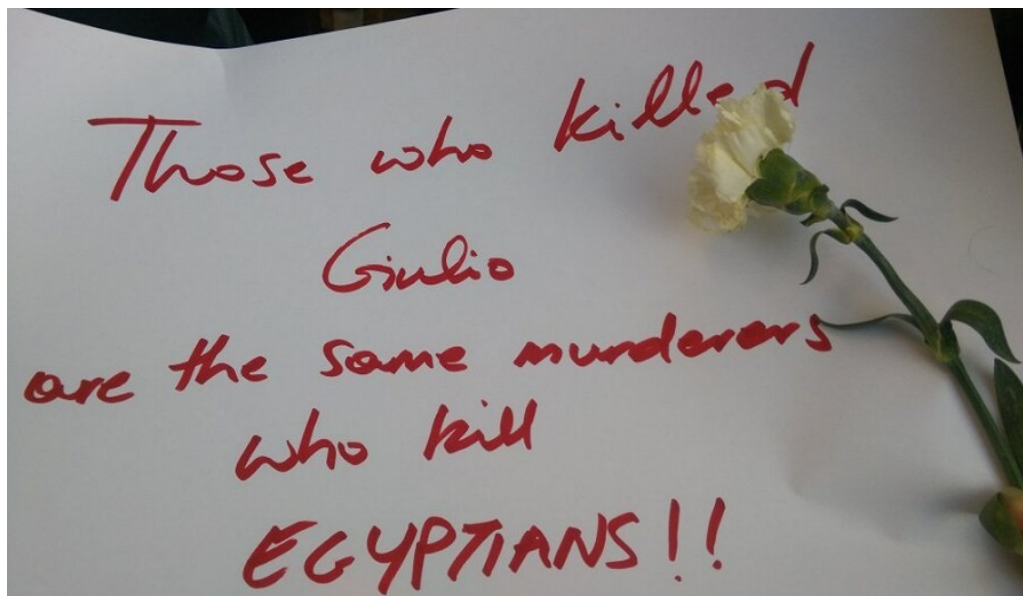 Those who killed
Giulio
are the same murderers
who kill
EGYPTIANS!!